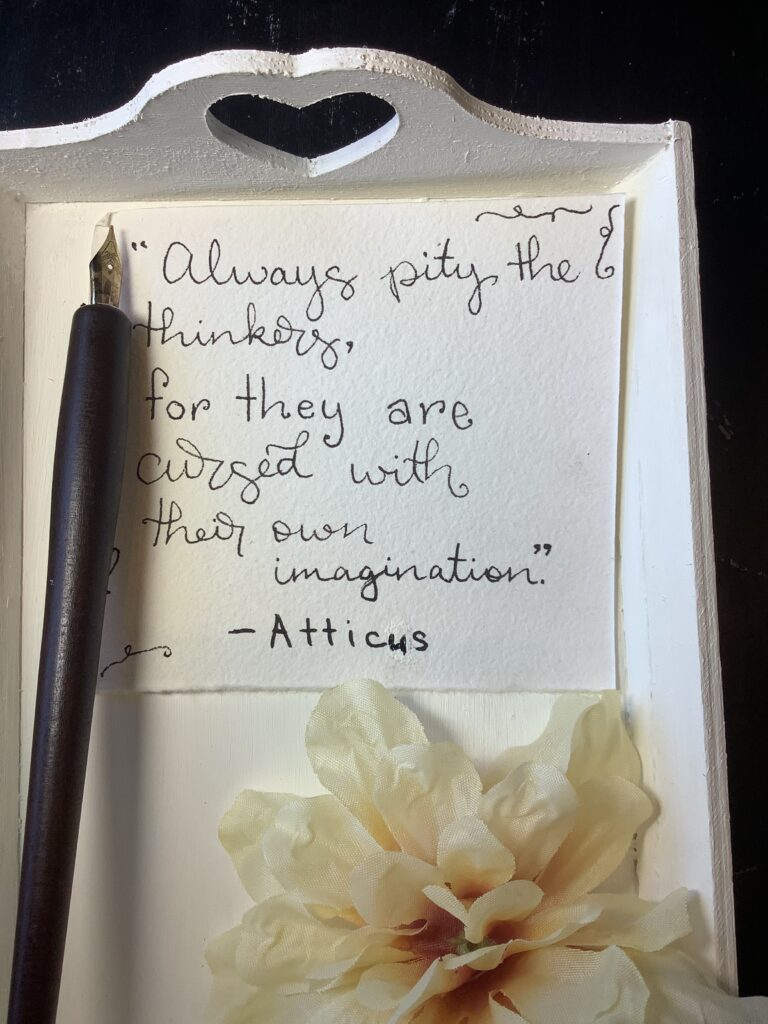 "Always pity the
thinkers,
for they are
cursed with
their own
imagination."
- Atticus